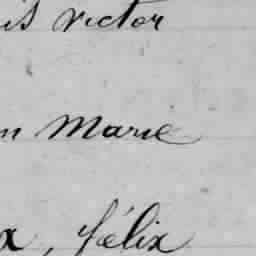 is victor
n Marie
x, félix